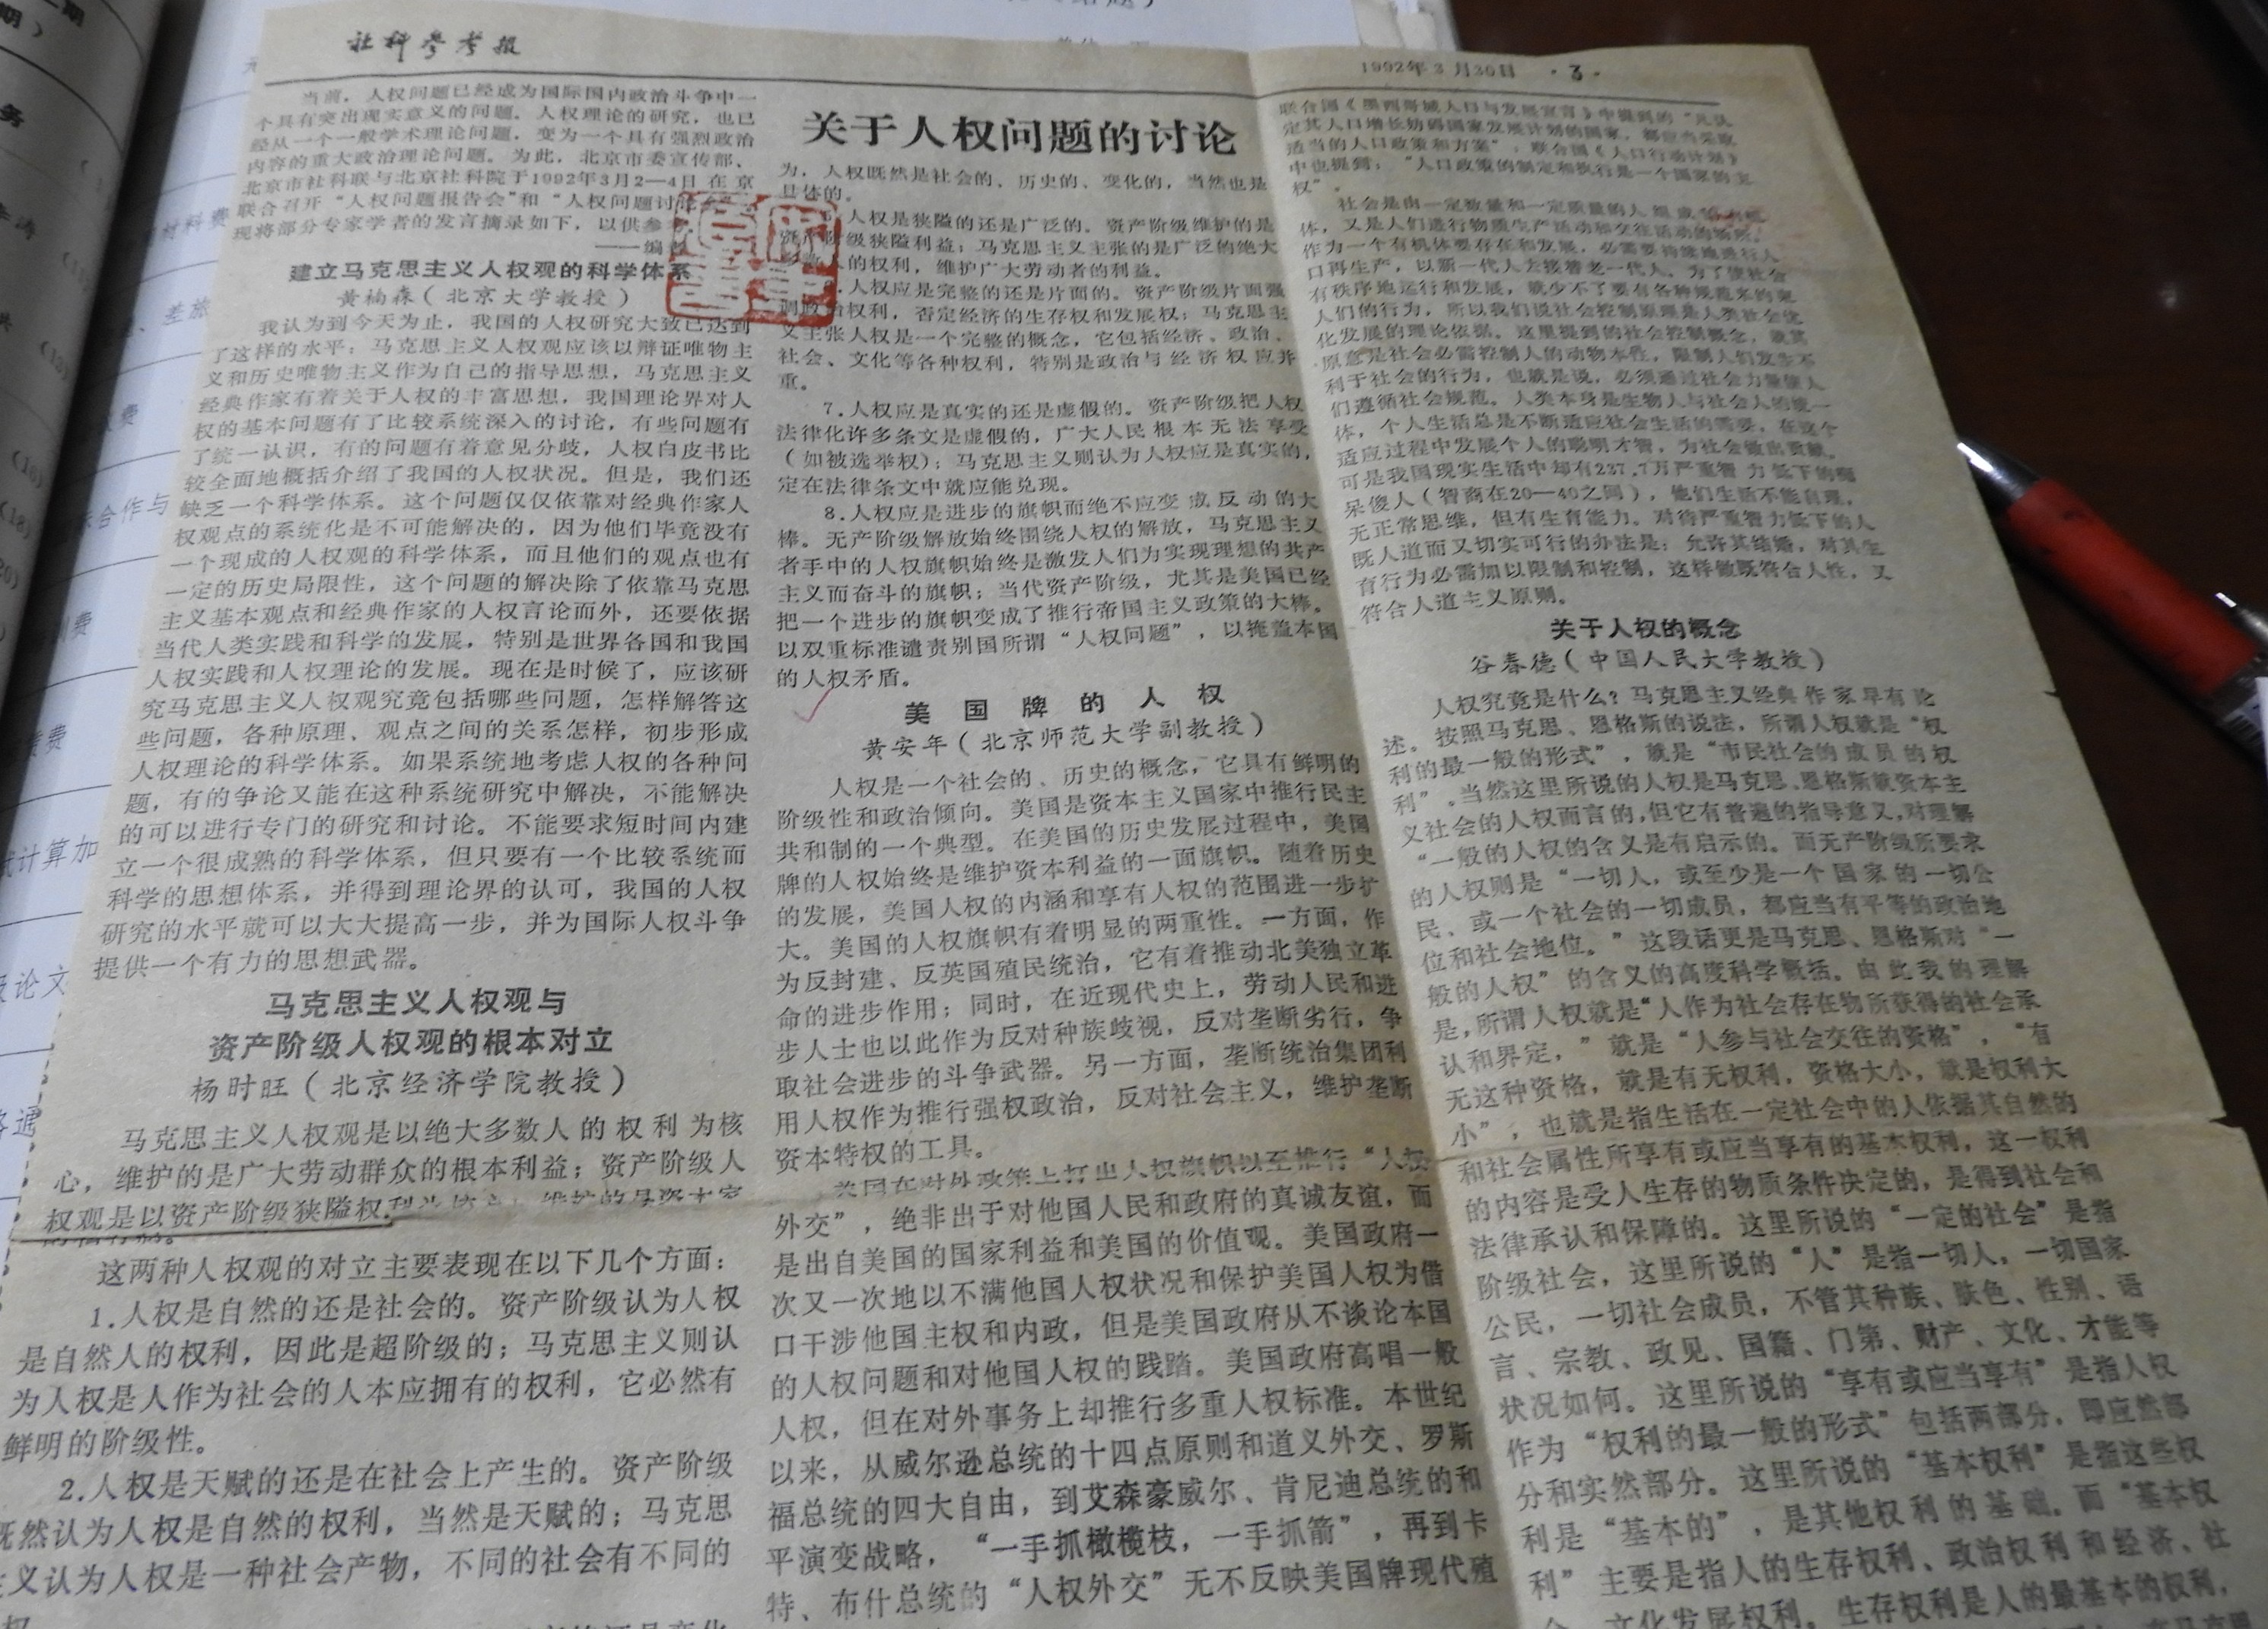 社科参考报
1992年3月30日 ·3·
当前，人权问题已经成为国际国内政治斗争中一
个具有突出现实意义的问题。人权理论的研究，也已
经从一个一般学术理论问题，变为一个具有强烈政治
内容的重大政治理论问题。为此，北京市委宣传部、
北京市社科联与北京社科院于1992年3月2—4日在京
联合召开“人权问题报告会”和“人权问题讨
现将部分专家学者的发言摘录如下，以供参
——编
建立马克思主义人权观的科学体系
黄枬森（北京大学教授）
我认为到今天为止，我国的人权研究大致已达到
了这样的水平：马克思主义人权观应该以辩证唯物主
义和历史唯物主义作为自己的指导思想，马克思主义
经典作家有着关于人权的丰富思想，我国理论界对人
权的基本问题有了比较系统深入的讨论，有些问题有
了统一认识，有的问题有着意见分歧，人权白皮书比
较全面地概括介绍了我国的人权状况。但是，我们还
缺乏一个科学体系。这个问题仅仅依靠对经典作家人
权观点的系统化是不可能解决的，因为他们毕竟没有
一个现成的人权观的科学体系，而且他们的观点也有
一定的历史局限性，这个问题的解决除了依靠马克思
主义基本观点和经典作家的人权言论而外，还要依据
当代人类实践和科学的发展，特别是世界各国和我国
人权实践和人权理论的发展。现在是时候了，应该研
究马克思主义人权观究竟包括哪些问题，怎样解答这
些问题，各种原理、观点之间的关系怎样，初步形成
人权理论的科学体系。如果系统地考虑人权的各种问
题，有的争论又能在这种系统研究中解决，不能解决
的可以进行专门的研究和讨论。不能要求短时间内建
立一个很成熟的科学体系，但只要有一个比较系统而
科学的思想体系，并得到理论界的认可，我国的人权
研究的水平就可以大大提高一步，并为国际人权斗争
提供一个有力的思想武器。
马克思主义人权观与
资产阶级人权观的根本对立
杨时旺（北京经济学院教授）
马克思主义人权观是以绝大多数人的权利为核
心，维护的是广大劳动群众的根本利益；资产阶级人
权观是以资产阶级狭隘权利为核心，维护的是资本家
这两种人权观的对立主要表现在以下几个方面：
1.人权是自然的还是社会的。资产阶级认为人权
是自然人的权利，因此是超阶级的；马克思主义则认
为人权是人作为社会的人本应拥有的权利，它必然有
鲜明的阶级性。
2.人权是天赋的还是在社会上产生的。资产阶级
既然认为人权是自然的权利，当然是天赋的；马克思
主义认为人权是一种社会产物，不同的社会有不同的
权
关于人权问题的讨论
为，人权既然是社会的、历史的、变化的，当然也是
具体的。
人权是狭隘的还是广泛的。资产阶级维护的是
资产阶级狭隘利益；马克思主义主张的是广泛的绝大
人的权利，维护广大劳动者的利益。
人权应是完整的还是片面的。资产阶级片面强
调政治权利，否定经济的生存权和发展权；马克思主
义主张人权是一个完整的概念，它包括经济、政治、
社会、文化等各种权利，特别是政治与经济权应并
重。
7.人权应是真实的还是虚假的。资产阶级把人权
法律化许多条文是虚假的，广大人民根本无法享受
（如被选举权）；马克思主义则认为人权应是真实的，
定在法律条文中就应能兑现。
8.人权应是进步的旗帜而绝不应变成反动的大
棒。无产阶级解放始终围绕人权的解放，马克思主义
者手中的人权旗帜始终是激发人们为实现理想的共产
主义而奋斗的旗帜；当代资产阶级，尤其是美国已经
把一个进步的旗帜变成了推行帝国主义政策的大棒。
以双重标准谴责别国所谓“人权问题”，以掩盖本国
的人权矛盾。
美国牌的人权
黄安年（北京师范大学副教授）
人权是一个社会的、历史的概念，它具有鲜明的
阶级性和政治倾向。美国是资本主义国家中推行民主
共和制的一个典型。在美国的历史发展过程中，美国
牌的人权始终是维护资本利益的一面旗帜。随着历史
的发展，美国人权的内涵和享有人权的范围进一步扩
大。美国的人权旗帜有着明显的两重性。一方面，作
为反封建、反英国殖民统治，它有着推动北美独立革
命的进步作用；同时，在近现代史上，劳动人民和进
步人士也以此作为反对种族歧视，反对垄断劣行，争
取社会进步的斗争武器。另一方面，垄断统治集团利
用人权作为推行强权政治，反对社会主义，维护垄断
资本特权的工具。
美国在对外政策上打出人权旗帜以至推行“人权
外交”，绝非出于对他国人民和政府的真诚友谊，而
是出自美国的国家利益和美国的价值观。美国政府一
次又一次地以不满他国人权状况和保护美国人权为借
口干涉他国主权和内政，但是美国政府从不谈论本国
的人权问题和对他国人权的践踏。美国政府高唱一般
人权，但在对外事务上却推行多重人权标准。本世纪
以来，从威尔逊总统的十四点原则和道义外交、罗斯
福总统的四大自由，到艾森豪威尔、肯尼迪总统的和
平演变战略，“一手抓橄榄枝，一手抓箭”，再到卡
特、布什总统的“人权外交”无不反映美国牌现代殖
联合国《墨西哥城人口与发展宣言》中提到的“凡认
定其人口增长妨碍国家发展计划的国家，都应当采取
适当的人口政策和方案”，联合国《人口行动计划》
中也提到：“人口政策的制定和执行是一个国家的主
权”。
社会是由一定数量和一定质量的人组成
体，又是人们进行物质生产活动和交往活动的场所。
作为一个有机体要存在和发展，必需要持续地进行人
口再生产，以新一代人去接替老一代人。为了使社会
有秩序地运行和发展，就少不了要有各种规范来约束
人们的行为，所以我们说社会控制原理是人类社会优
化发展的理论依据。这里提到的社会控制概念，就其
原意是社会必需控制人的动物本性，限制人们发生不
利于社会的行为，也就是说，必须通过社会力量使人
们遵循社会规范。人类本身是生物人与社会人的统一
体，个人生活总是不断适应社会生活的需要，在这个
适应过程中发展个人的聪明才智，为社会做出贡献。
可是我国现实生活中却有237.7万严重智力低下的痴
呆傻人（智商在20—40之间），他们生活不能自理，
无正常思维，但有生育能力。对待严重智力低下的人
既人道而又切实可行的办法是：允许其结婚，对其生
育行为必需加以限制和控制，这样做既符合人性，又
符合人道主义原则。
关于人权的概念
谷春德（中国人民大学教授）
人权究竟是什么？马克思主义经典作家早有论
述。按照马克思、恩格斯的说法，所谓人权就是“权
利的最一般的形式”，就是“市民社会的成员的权
利”。当然这里所说的人权是马克思、恩格斯就资本主
义社会的人权而言的，但它有普遍的指导意义，对理解
“一般的人权的含义是有启示的。而无产阶级所要求
的人权则是“一切人，或至少是一个国家的一切公
民、或一个社会的一切成员，都应当有平等的政治地
位和社会地位。”这段话更是马克思、恩格斯对“一
般的人权”的含义的高度科学概括。由此我的理解
是，所谓人权就是“人作为社会存在物所获得的社会承
认和界定，”就是“人参与社会交往的资格”，“有
无这种资格，就是有无权利，资格大小，就是权利大
小”，也就是指生活在一定社会中的人依据其自然的
和社会属性所享有或应当享有的基本权利，这一权利
的内容是受人生存的物质条件决定的，是得到社会和
法律承认和保障的。这里所说的“一定的社会”是指
阶级社会，这里所说的“人”是指一切人，一切国家
公民，一切社会成员，不管其种族、肤色、性别、语
言、宗教、政见、国籍、门第、财产、文化、才能等
状况如何。这里所说的“享有或应当享有”是指人权
作为“权利的最一般的形式”包括两部分，即应然部
分和实然部分。这里所说的“基本权利”是指这些权
利是“基本的”，是其他权利的基础。而“基本权
利”主要是指人的生存权利、政治权利和经济、社
会、文化发展权利。生存权利是人的最基本的权利，